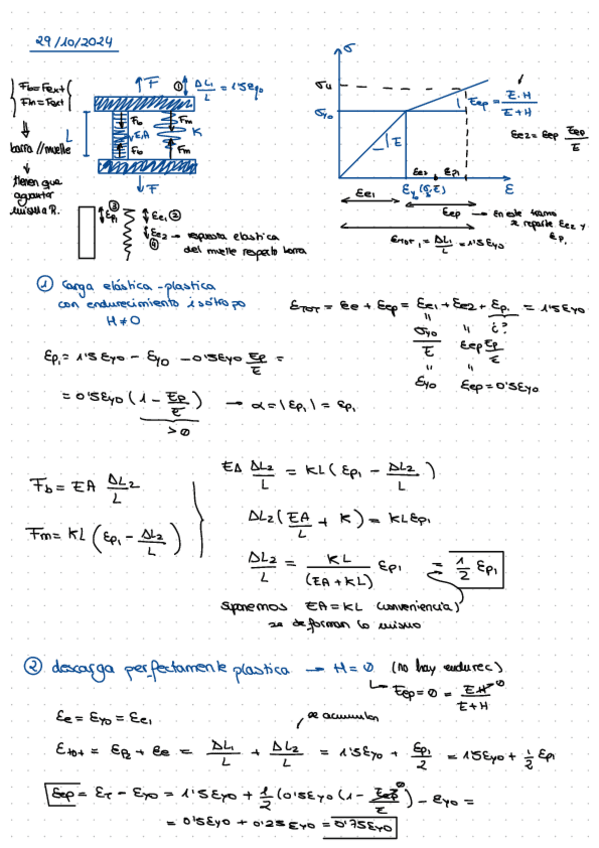 29/10/2024
Fb = Fext
Fm = Fext
barra // muelle
tienen que
aguantar
F
① ΔL1/L = 1'5εy0
Fb Fm
L E,A K
Fb Fm
F
③ εp1 εe1 ②
εe2 → respuesta elastica
④ del muelle respecto barra
σ
σu
σy0
E
1 Eep = E·H/(E+H)
εe2 = εep Eep/E
εe2 εp1
εy0 ε
εe1
εep → en este tramo
se reparte εe2 y
εp1
εTOT,1 = ΔL1/L = 1'5εy0
① Carga elástica-plastica
con endurecimiento isótropo
H≠0
εTOT = εe + εep = εe1 + εe2 + εp1 = 1'5εy0
σy0/E εep Ep/E ¿?
εy0 εep = 0'5εy0
εp1 = 1'5εy0 - εy0 - 0'5εy0 Ep/E =
= 0'5εy0 (1 - Ep/E) → α = |εp1| = εp1
> 0
Fb = EA ΔL2/L
Fm = KL (εp1 - ΔL2/L)
EA ΔL2/L = KL (εp1 - ΔL2/L)
ΔL2 (EA/L + K) = KLεp1
ΔL2/L = KL/(EA+KL) εp1 = 1/2 εp1
suponemos EA = KL (conveniencia)
se deforman lo mismo
② descarga perfectamente plastica → H=0 (no hay endurec)
Eep = 0 = EH/(E+H) → 0
εe = εy0 = εe1
se acumulan
εtot = εp2 + εe = ΔL1/L + ΔL2/L = 1'5εy0 + εp1/2 = 1'5εy0 + 1/2 εp1
εep = εT - εy0 = 1'5εy0 + 1/2 (0'5εy0 (1 - Eep/E) - εy0 =
= 0'5εy0 + 0'25εy0 = 0'75εy0